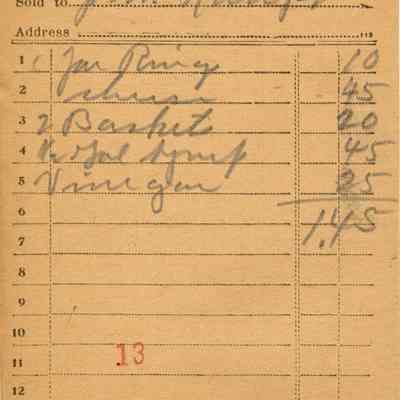 Sold to
Address
1 1 Jar Ring 10
2 cheese 45
3 2 Basket 20
4 ½ Gal syrup 45
5 Vinegar 25
6 1.45
7
8
9
10
11 13
12